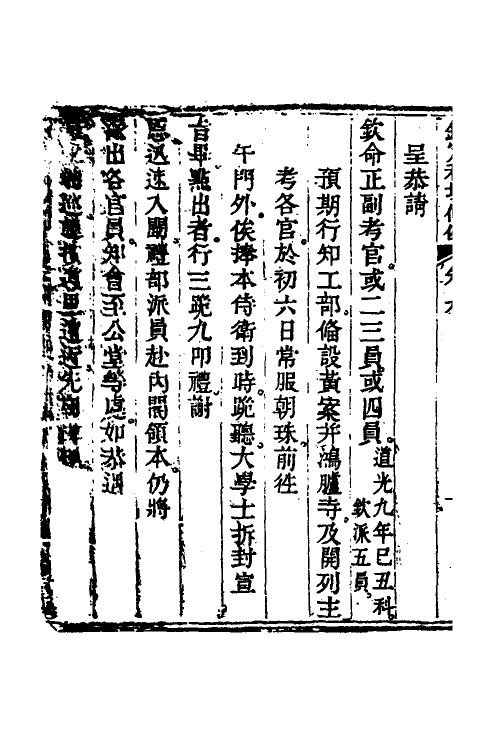 呈恭請
欽命正副考官或二三員或四員道光九年己丑科
欽派五員
預期行知工部俻設黃案并鴻臚寺及開列主
考各官於初六日常服朝珠前徃
午門外俟捧本侍衛到時跪聽大學士拆封宣
旨畢點出者行三跪九叩禮謝
恩迅速入闈禮部派員赴內閣領本仍將
出各官員知會至公堂等處如恭遇